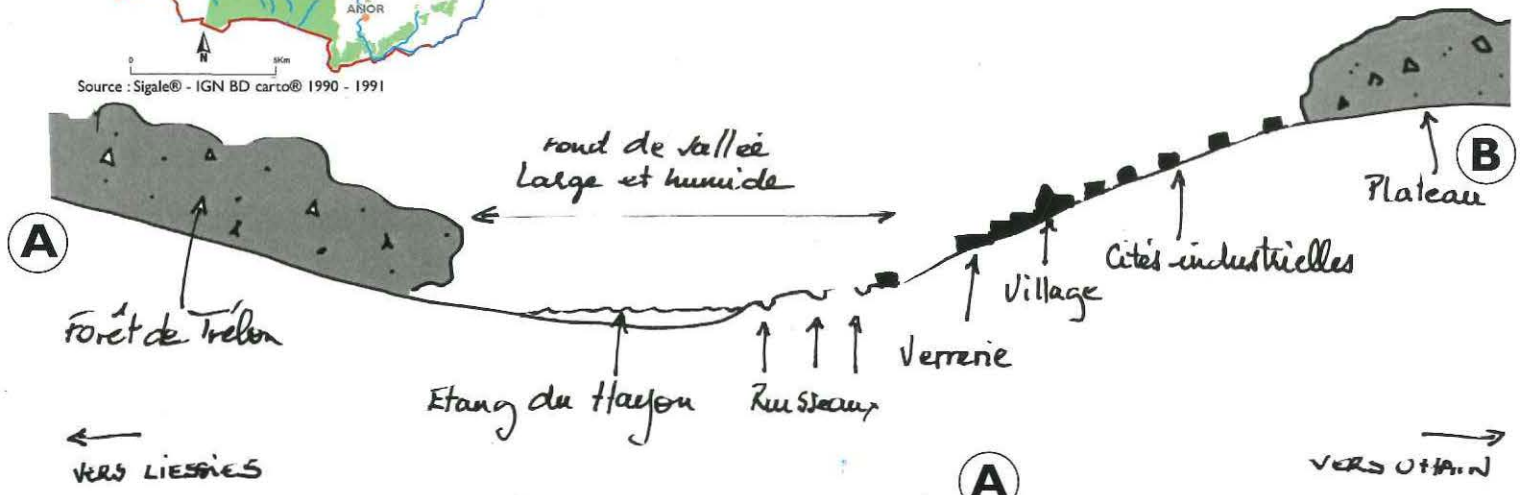 ANOR
N
0 5Km
Source : Sigale® - IGN BD carto® 1990 - 1991
Fond de vallée
Large et humide
B
Plateau
A
Cités industrielles
Village
Forêt de Trélon
Verrerie
Etang du Hayon
Ruisseaux
VERS LIESSIES
VERS OHAIN
A